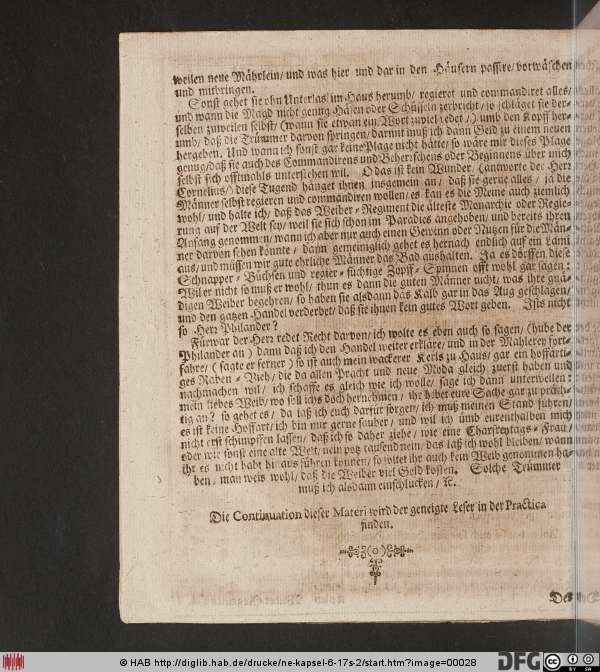 weilen neue Mährlein/ und was hier und dar in den Häusern passire/ vorwäschen
und mitbringen.
Sonst gehet sie ohn Unterlas im Haus herumb/ regieret und commandiret alles/
und wann die Magd nicht genug Häfen oder Schüsseln zerbricht/ so schläget sie der-
selben zuweilen selbst/ (wann sie etwan ein Wort zuviel redet/) umb den Kopf her-
umb/ daß die Trümmer darvon springen/ darmit muß ich dann Geld zu einem neuen
hergeben. Und wann ich sonst gar keine Plage nicht hätte/ so wäre mir dieses Plage
genug/ daß sie auch des Commandirens und Beherrschens oder Beginnens über mich
selbst sich offtmahls unterstehen wil. O das ist kein Wunder, (antworte der Herr
Cornelius/) diese Tugend hänget ihnen insgemein an/ daß sie gerne alles/ ja die
Männer selbst regieren und commandiren wollen/ es kan es die Meine auch ziemlich
wohl/ und halte ich/ daß das Weiber-Regiment die älteste Monarchie oder Regie-
rung auf der Welt sey/ weil sie sich schon im Paradies angehoben/ und bereits ihren
Anfang genommen/ wann ich aber nur auch einen Gewinn oder Nutzen für die Män-
ner darvon sehen könnte/ dann gemeiniglich gehet es hernach endlich auf ein Lami
aus/ und müssen wir gute ehrliche Männer das Bad aushalten. Ja es dörffen diese
Schnapper-Büchsen und regier-süchtige Zopff-Spinnen offt wohl gar sagen:
Wil er nicht so muß er wohl/ thun es dann die guten Männer nicht/ was ihre gnä-
digen Weiber begehren/ so haben sie alsdann das Kalb gar in das Aug geschlagen/
und den gantzen Handel verderbet/ daß sie ihnen kein gutes Wort geben. Ists nicht
so Herr Philander?
Fürwar der Herr redet Recht darvon/ ich wolte es eben auch so sagen/ (hube der
Philander an) dann daß ich den Handel weiter erkläre/ und in der Mahlerey fort-
fahre/ (sagte er ferner) so ist auch mein wackerer Kerls zu Haus/ gar ein hoffärti-
ges Raben-Vieh/ die da allen Pracht und neue Moda gleich zuerst haben und
nachmachen wil/ ich schaffe es gleich wie ich wolle/ sage ich dann unterweilen:
mein liebes Weib/ wo soll ichs doch hernehmen/ ihr habet eure Sache gar zu präch-
tig an? so gehet es/ da laß ich euch darfür sorgen/ ich muß meinen Stand führen/
es ist keine Hoffart/ ich bin nur gerne sauber/ und wil ich umb eurenthalben mich
nicht erst schimpffen lassen/ daß ich so daher ziehe/ wie eine Charfreytags-Frau/
oder wie sonst eine alte Wett/ nein potz tausend nein/ das laß ich wohl bleiben/ wann
ihr es nicht habt hinaus führen können/ so soltet ihr auch kein Weib genommen ha-
ben/ man weis wohl/ daß die Weiber viel Geld kosten. Solche Trümmer
muß ich alsdann einschlucken/ ꝛc.
Die Continuation dieser Materi wird der geneigte Leser in der Practica
finden.
© HAB http://diglib.hab.de/drucke/ne-kapsel-6-17s-2/start.htm?image=00028
DFG
CC BY SA